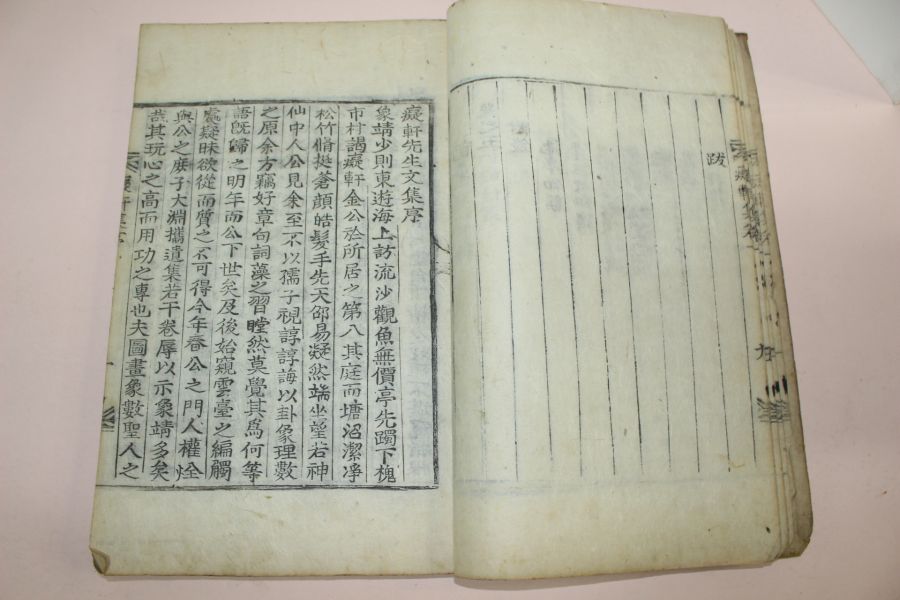 跋
癡軒先生文集序
象靖少則東遊海上訪流沙觀魚無價亭先躅下槐
市村謁癡軒金公於所居之第八其庭而塘沼潔凈
松竹脩挺蒼顔皓髮手先天邵易凝然端坐望若神
仙中人公見余至不以孺子視諄諄誨以卦象理數
之原余方竊好章句詞藻之習瞠然莫覺其爲何等
語旣歸之明年而公下世矣及後始窺雲臺之編觸
處疑昧欲從而質之不可得今年春公之門人權烇
與公之庶子大淵攜遺集若干卷辱以示象靖多矣
哉其玩心之高而用功之專也夫圖畫象數聖人之